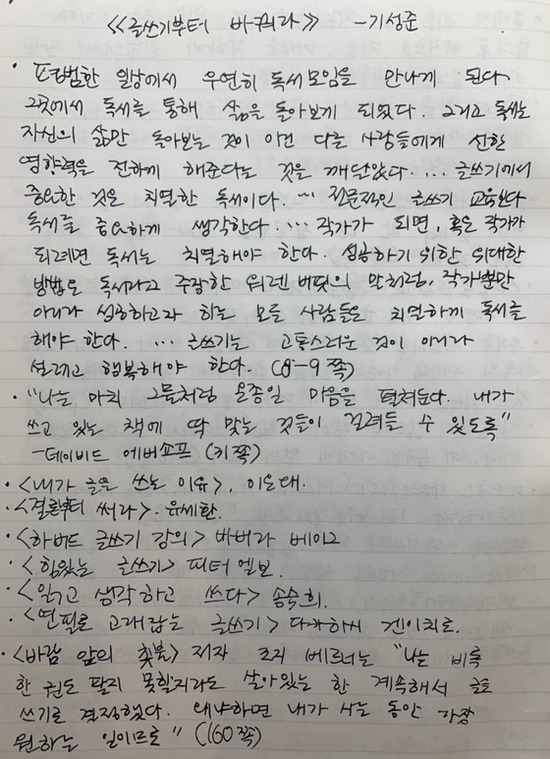 <<글쓰기부터 바꿔라>> -기성준
· 평범한 일상에서 우연히 독서모임을 만나게 된다.
그곳에서 독서를 통해 삶을 돌아보게 되었다. 그리고 독서는
자신의 삶만 돌아보는 것이 아닌 다른 사람들에게 선한
영향력을 전하게 해준다는 것을 깨달았다. ... 글쓰기에서
중요한 것은 치열한 독서이다. ... 전문적인 글쓰기 교육보다
독서를 중요하게 생각한다. ... 작가가 되면, 혹은 작가가
되려면 독서는 치열해야 한다. 성공하기 위한 위대한
방법은 독서라고 주장한 워렌 버핏의 말처럼, 작가뿐만
아니라 성공하고자 하는 모든 사람들은 치열하게 독서를
해야 한다. ... 글쓰기는 고통스러운 것이 아니라
설레고 행복해야 한다. (8-9쪽)
· "나는 마치 그물처럼 온종일 마음을 펼쳐둔다. 내가
쓰고 있는 책에 딱 맞는 것들이 걸려들 수 있도록"
- 데이비드 에버쇼프 (31쪽)
· <내가 글을 쓰는 이유>, 이은대.
· <결론부터 써라>. 유세환.
· <하버드 글쓰기 강의> 바버라 베이그
· <힘있는 글쓰기> 피터 엘보.
· <읽고 생각하고 쓰다> 송숙희.
· <연필로 고래잡는 글쓰기> 다카하시 겐이치로.
· <바람 앞의 촛불> 저자 조지 베르너는 "나는 비록
한 권도 팔지 못할지라도 살아있는 한 계속해서 글을
쓰기로 결정했다. 왜냐하면 내가 사는 동안 가장
원하는 일이므로" (160쪽)